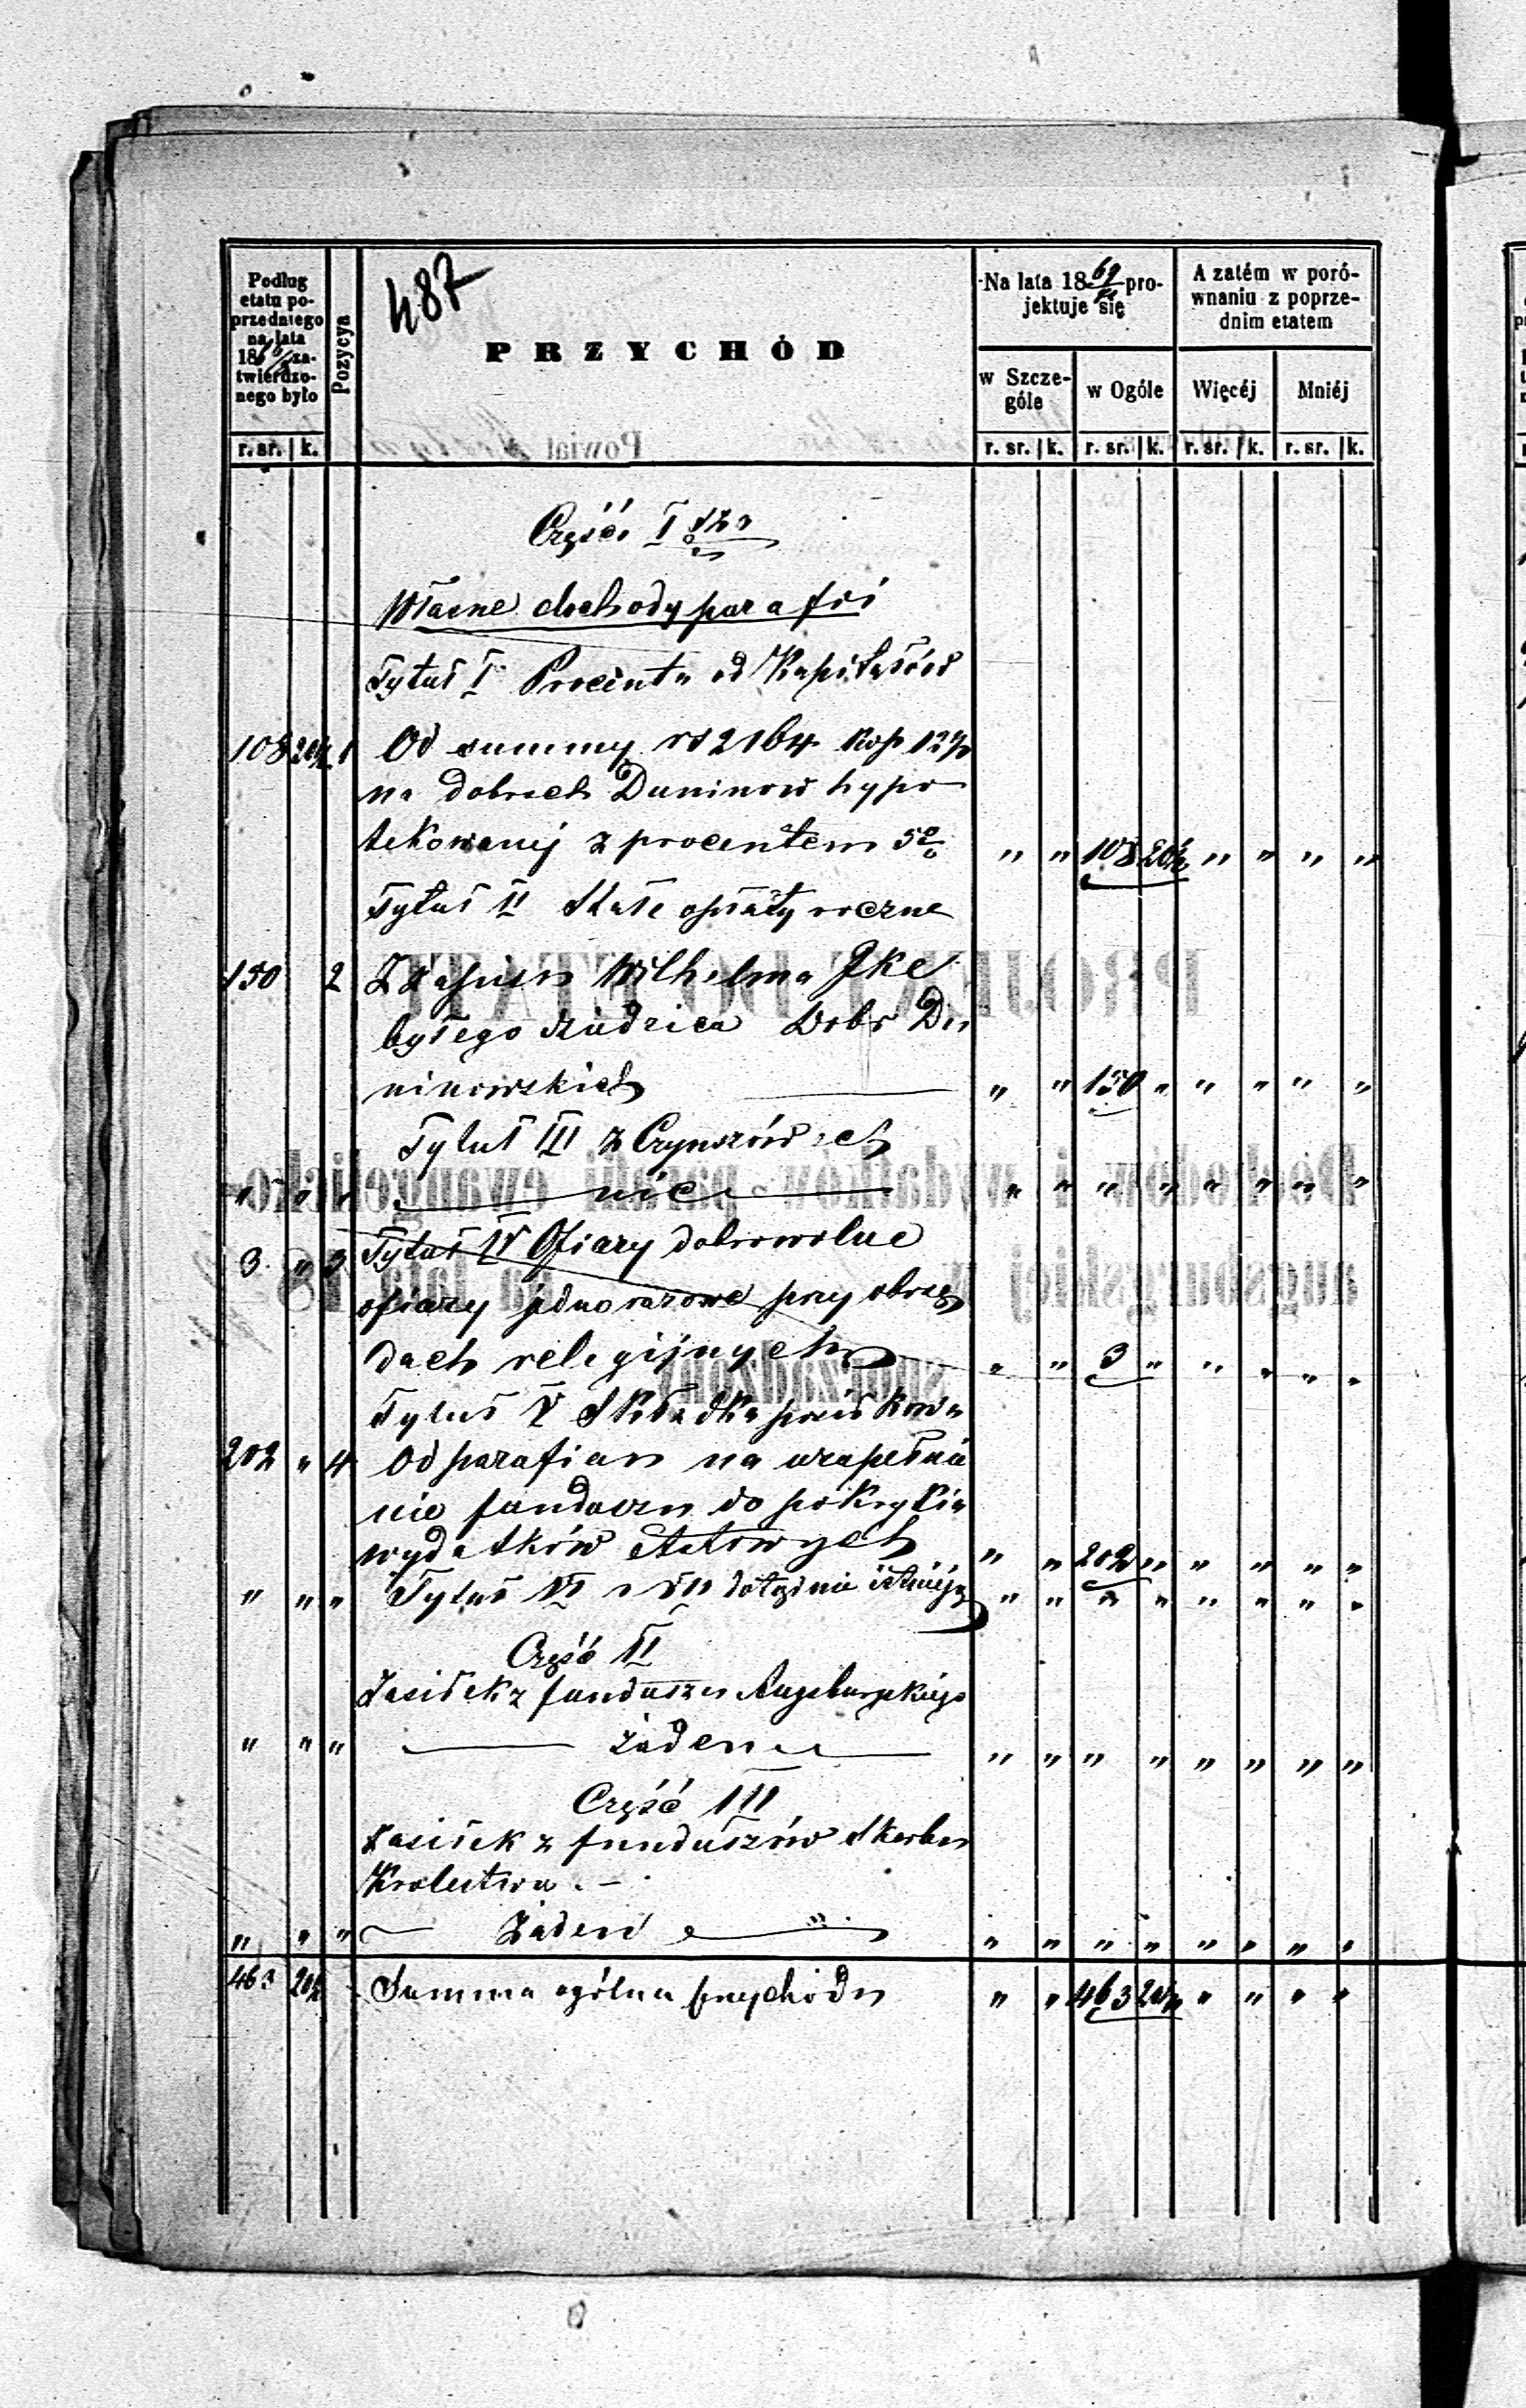 487
Podług etatu poprzedniego na lata 18 zatwierdzonego było
Pozycya
PRZYCHÓD
Na lata 18 69 projektuje się
A zatém w porównaniu z poprzednim etatem
w Szczególe
w Ogóle
Więcéj
Mniéj
r. sr. k. r. sr. k. r. sr. k. r. sr. k. r. sr. k.
Część I sza
Własne dochody parafii
Tytuł I Procenta od Kapitałów
108 20½ 1 Od summy rs 2164 kop 12½
na dobrach Duninow hypo
tekowanej z procentem 5% " " 108 20½ " " " "
Tytuł II Stałe opłaty roczne
150 2 Z zapisu Wilhelma Ike
byłego dziedzica Dobr Du
ninowskich " " 150 " " " " "
Tytuł III z Czynszów
" " " nic " " " " " " " "
3 " 3 Tytuł IV Ofiary dobrowolne
ofiary jednorazowe przy obrzę
dach religijnych " " 3 " " " " "
Tytuł V Składka
202 " 4 Od parafian na uzupełnie
nie funduszu do pokrycia
wydatków etatowych " " 202 " " " " "
" " " Tytuł VI i VII dotąd nie istnieją " " " " " " " "
Część II
Zasiłek z funduszu Augsburgskiego
" " " żaden " " " " " " " "
Część III
Zasiłek z funduszów Skarbu
Krolestwa
" " " Żaden " " " " " " " "
463 20½ Summa ogólna przychodu " " 463 20½ " " " "